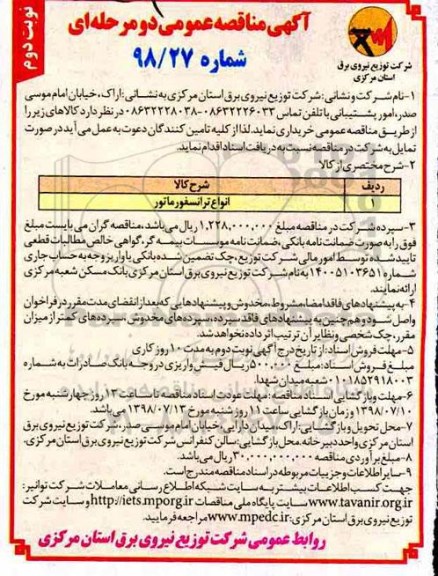 نوبت دوم
آگهی مناقصه عمومی دو مرحله ای
شماره ۹۸/۲۷
شرکت توزیع نیروی برق
استان مرکزی
۱-نام شرکت و نشانی: شرکت توزیع نیروی برق استان مرکزی به نشانی: اراک، خیابان امام موسی
صدر، امور پشتیبانی با تلفن تماس ۰۸۶۳۲۲۲۶۰۳۳-۰۸۶۳۲۲۲۸۰۳۸ در نظر دارد کالاهای زیر را
از طریق مناقصه عمومی خریداری نماید. لذا از کلیه تامین کنندگان دعوت به عمل می آید در صورت
تمایل به شرکت در مناقصه نسبت به دریافت اسناد اقدام نماید.
۲-شرح مختصری از کالا
ردیف شرح کالا
۱ انواع ترانسفورماتور
۳-سپرده شرکت در مناقصه مبلغ ۱,۲۲۸,۰۰۰,۰۰۰ ریال می باشد، مناقصه گران می بایست مبلغ
فوق را به صورت ضمانت نامه بانکی، ضمانت نامه موسسات بیمه گر، گواهی خالص مطالبات قطعی
تایید شده توسط امور مالی شرکت توزیع، چک تضمین شده بانکی یا واریز وجه به حساب جاری
شماره ۱۴۰۰۵۱۰۳۶۵۱ به نام شرکت توزیع نیروی برق استان مرکزی بانک مسکن شعبه مرکزی
ارائه نمایند.
۴-به پیشنهادهای فاقد امضا، مشروط، مخدوش و پیشنهادهایی که بعد از انقضای مدت مقرر در فراخوان
واصل شود و هم چنین به پیشنهادهای فاقد سپرده، سپرده های مخدوش، سپرده های کمتر از میزان
مقرر، چک شخصی و نظایر آن ترتیب اثر داده نخواهد شد.
۵-مهلت فروش اسناد: از تاریخ درج آگهی نوبت دوم به مدت ۱۰ روز کاری
مبلغ فروش اسناد: مبلغ ۵۰۰,۰۰۰ ریال فیش واریزی در وجه بانک صادرات به شماره
۰۱۰۱۱۸۵۲۹۱۸۰۰۳ شعبه میدان شهدا.
۶-مهلت و بازگشایی اسناد مناقصه: مهلت عودت اسناد مناقصه تا ساعت ۱۳ روز چهارشنبه مورخ
۱۳۹۸/۰۷/۱۰ و زمان بازگشایی ساعت ۱۱ روز شنبه مورخ ۱۳۹۸/۰۷/۱۳ می باشد.
۷-محل تحویل و بازگشایی: اراک، میدان دارایی، خیابان امام موسی صدر، شرکت توزیع نیروی برق
استان مرکزی واحد دبیرخانه. محل بازگشایی: سالن کنفرانس شرکت توزیع نیروی برق استان مرکزی.
۸-مبلغ برآوردی مناقصه ۳۰,۰۰۰,۰۰۰,۰۰۰ ریال می باشد.
۹-سایر اطلاعات و جزییات مربوطه در اسناد مناقصه مندرج است.
جهت کسب اطلاعات بیشتر به سایت شبکه اطلاع رسانی معاملات شرکت توانیر:
www.tavanir.org.ir سایت پایگاه ملی مناقصات http://iets.mporg.ir و سایت شرکت
توزیع نیروی برق استان مرکزی: www.mpedc.ir مراجعه فرمایید.
روابط عمومی شرکت توزیع نیروی برق استان مرکزی